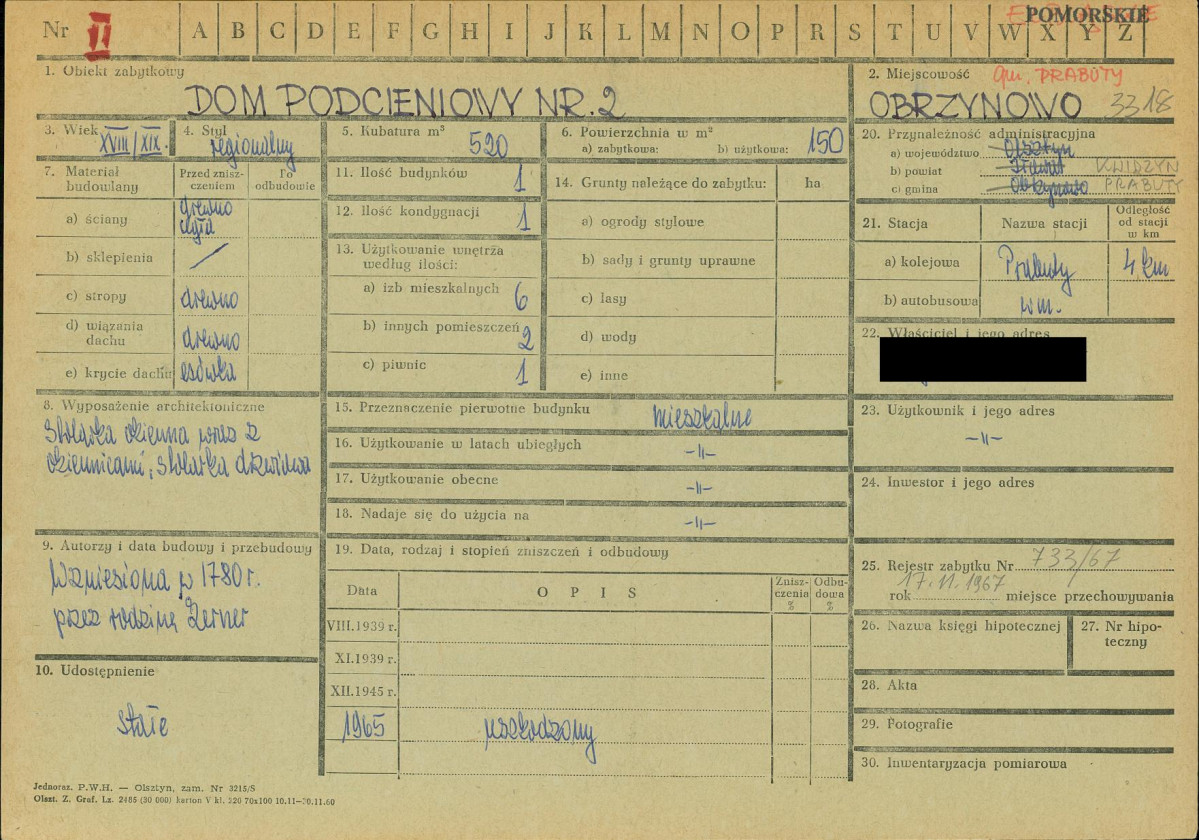 Nr II A B C D E F G H I J K L M N O P R S T U V W X Y Z
POMORSKIE
1. Obiekt zabytkowy
DOM PODCIENIOWY NR. 2
2. Miejscowość gm. PRABUTY
OBRZYNOWO 3318
3. Wiek XVIII/XIX.
4. Styl regionalny
5. Kubatura m³ 520
6. Powierzchnia w m²
a) zabytkowa: b) użytkowa: 150
7. Materiał budowlany
Przed zniszczeniem
Po odbudowie
a) ściany drewno cegła
b) sklepienia /
c) stropy drewno
d) wiązania dachu drewno
e) krycie dachu esówka
11. Ilość budynków 1
12. Ilość kondygnacji 1
13. Użytkowanie wnętrza
według ilości:
a) izb mieszkalnych 6
b) innych pomieszczeń 2
c) piwnic 1
14. Grunty należące do zabytku: ha
a) ogrody stylowe
b) sady i grunty uprawne
c) lasy
d) wody
e) inne
20. Przynależność administracyjna
a) województwo Olsztyn
b) powiat KWIDZYN
c) gmina PRABUTY
21. Stacja Nazwa stacji Odległość od stacji w km
a) kolejowa Prabuty 4 km
b) autobusowa w m.
22. Właściciel i jego adres
8. Wyposażenie architektoniczne
Stolarka okienna wraz z
okiennicami, stolarka drzwiowa
15. Przeznaczenie pierwotne budynku mieszkalne
16. Użytkowanie w latach ubiegłych -11-
17. Użytkowanie obecne -11-
18. Nadaje się do użycia na -11-
23. Użytkownik i jego adres
-11-
24. Inwestor i jego adres
9. Autorzy i data budowy i przebudowy
Wzniesiona w 1780 r.
przez rodzinę Zerner
10. Udostępnienie
stałe
19. Data, rodzaj i stopień zniszczeń i odbudowy
Data O P I S Zniszczenia % Odbudowa %
VIII.1939 r.
XI.1939 r.
XII.1945 r.
1965 uszkodzony
25. Rejestr zabytku Nr 733/67
rok 17.11.1967 miejsce przechowywania
26. Nazwa księgi hipotecznej
27. Nr hipoteczny
28. Akta
29. Fotografie
30. Inwentaryzacja pomiarowa
Jednoraz. P.W.H. — Olsztyn, zam. Nr 3215/S
Olszt. Z. Graf. Lz. 2485 (30 000) karton V kl. 220 70x100 10.11—30.11.60